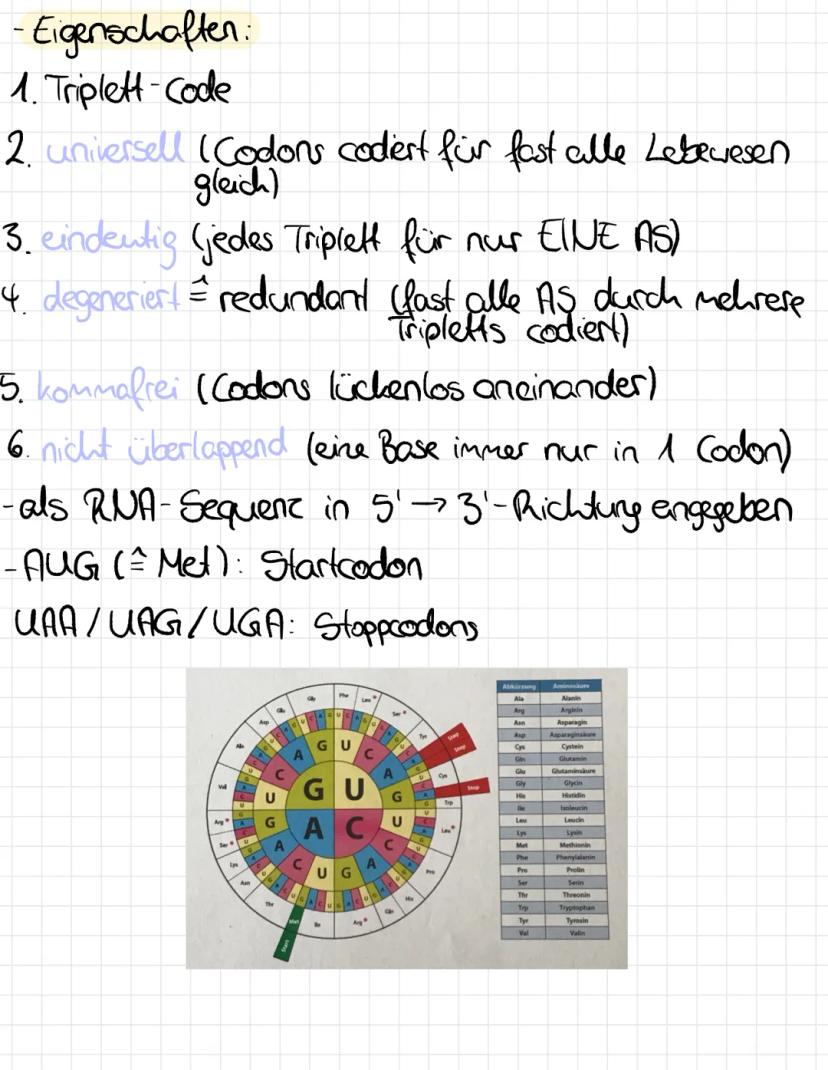 - Eigenschaften:
1. Triplett-Code
2. universell (Codons codiert für fast alle Lebewesen
gleich)
3. eindeutig (jedes Triplett für nur EINE AS)
4. degeneriert ≙ redundant (fast alle AS durch mehrere
Tripletts codiert)
5. kommafrei (Codons lückenlos aneinander)
6. nicht überlappend (eine Base immer nur in 1 Codon)
- als RNA-Sequenz in 5' → 3'-Richtung engegeben
- AUG (≙ Met): Startcodon
UAA / UAG / UGA: Stoppcodons
G U
A C
Gly
Phe
Leu
Ser
Tyr
Stop
Stop
Cys
Stop
Trp
Leu
Pro
His
Gln
Arg
Ile
Met
Start
Thr
Asn
Lys
Ser
Arg
Val
Ala
Asp
Glu
Abkürzung Aminosäure
Ala Alanin
Arg Arginin
Asn Asparagin
Asp Asparaginsäure
Cys Cystein
Gln Glutamin
Glu Glutaminsäure
Gly Glycin
His Histidin
Ile Isoleucin
Leu Leucin
Lys Lysin
Met Methionin
Phe Phenylalanin
Pro Prolin
Ser Serin
Thr Threonin
Trp Tryptophan
Tyr Tyrosin
Val Valin